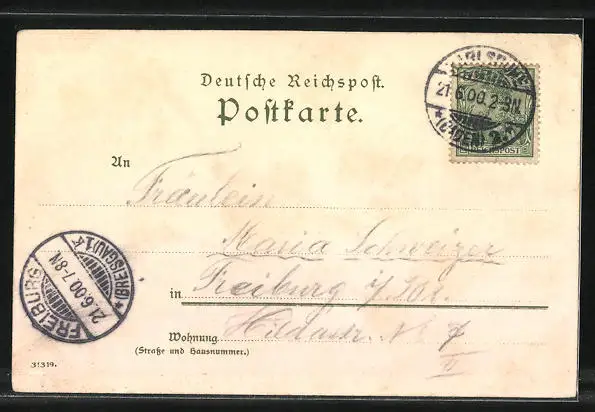 Deutsche Reichspost.
Postkarte.
KARLSRUHE
21.6.00.2-3N
*(BADEN) 2
REICHSPOST
An Fräulein
Maria Schweizer
in Freiburg i/
Wohnung Hildastr. No 7
(Straße und Hausnummer.)
II
FREIBURG
21.6.00.7-8N
*(BREISGAU)1*
31319.